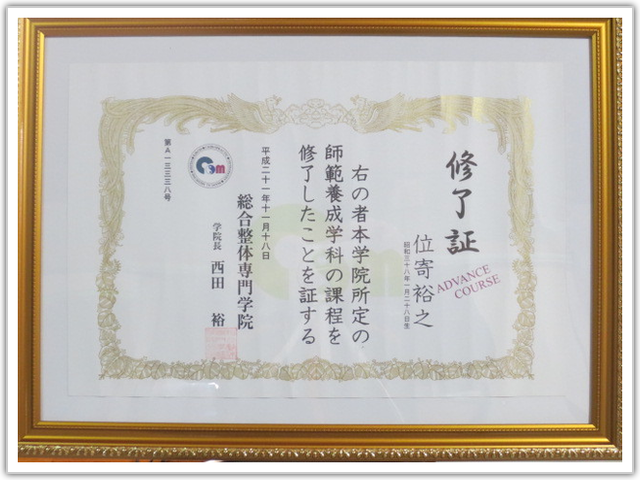 修了証
ADVANCE
COURSE
位寄裕之
昭和三十八年一月二十八日生
右の者本学院所定の
師範養成学科の課程を
修了したことを証する
平成二十一年十一月十八日
総合整体専門学院
学院長 西田 裕
第A一三三三八号